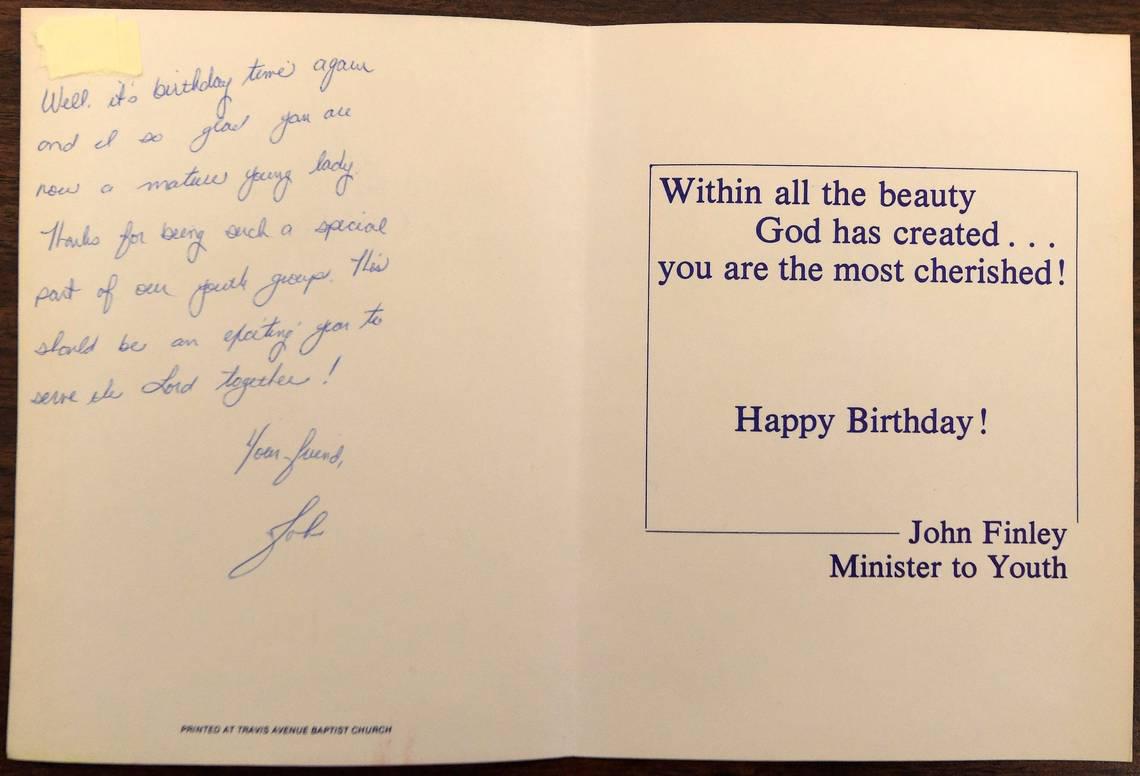 Well. it's birthday time again
and I so glad you are
now a mature young lady.
Thanks for being such a special
part of our youth group. This
should be an exciting year to
serve the Lord together!
Your friend,
John
PRINTED AT TRAVIS AVENUE BAPTIST CHURCH
Within all the beauty
God has created...
you are the most cherished!
Happy Birthday!
John Finley
Minister to Youth